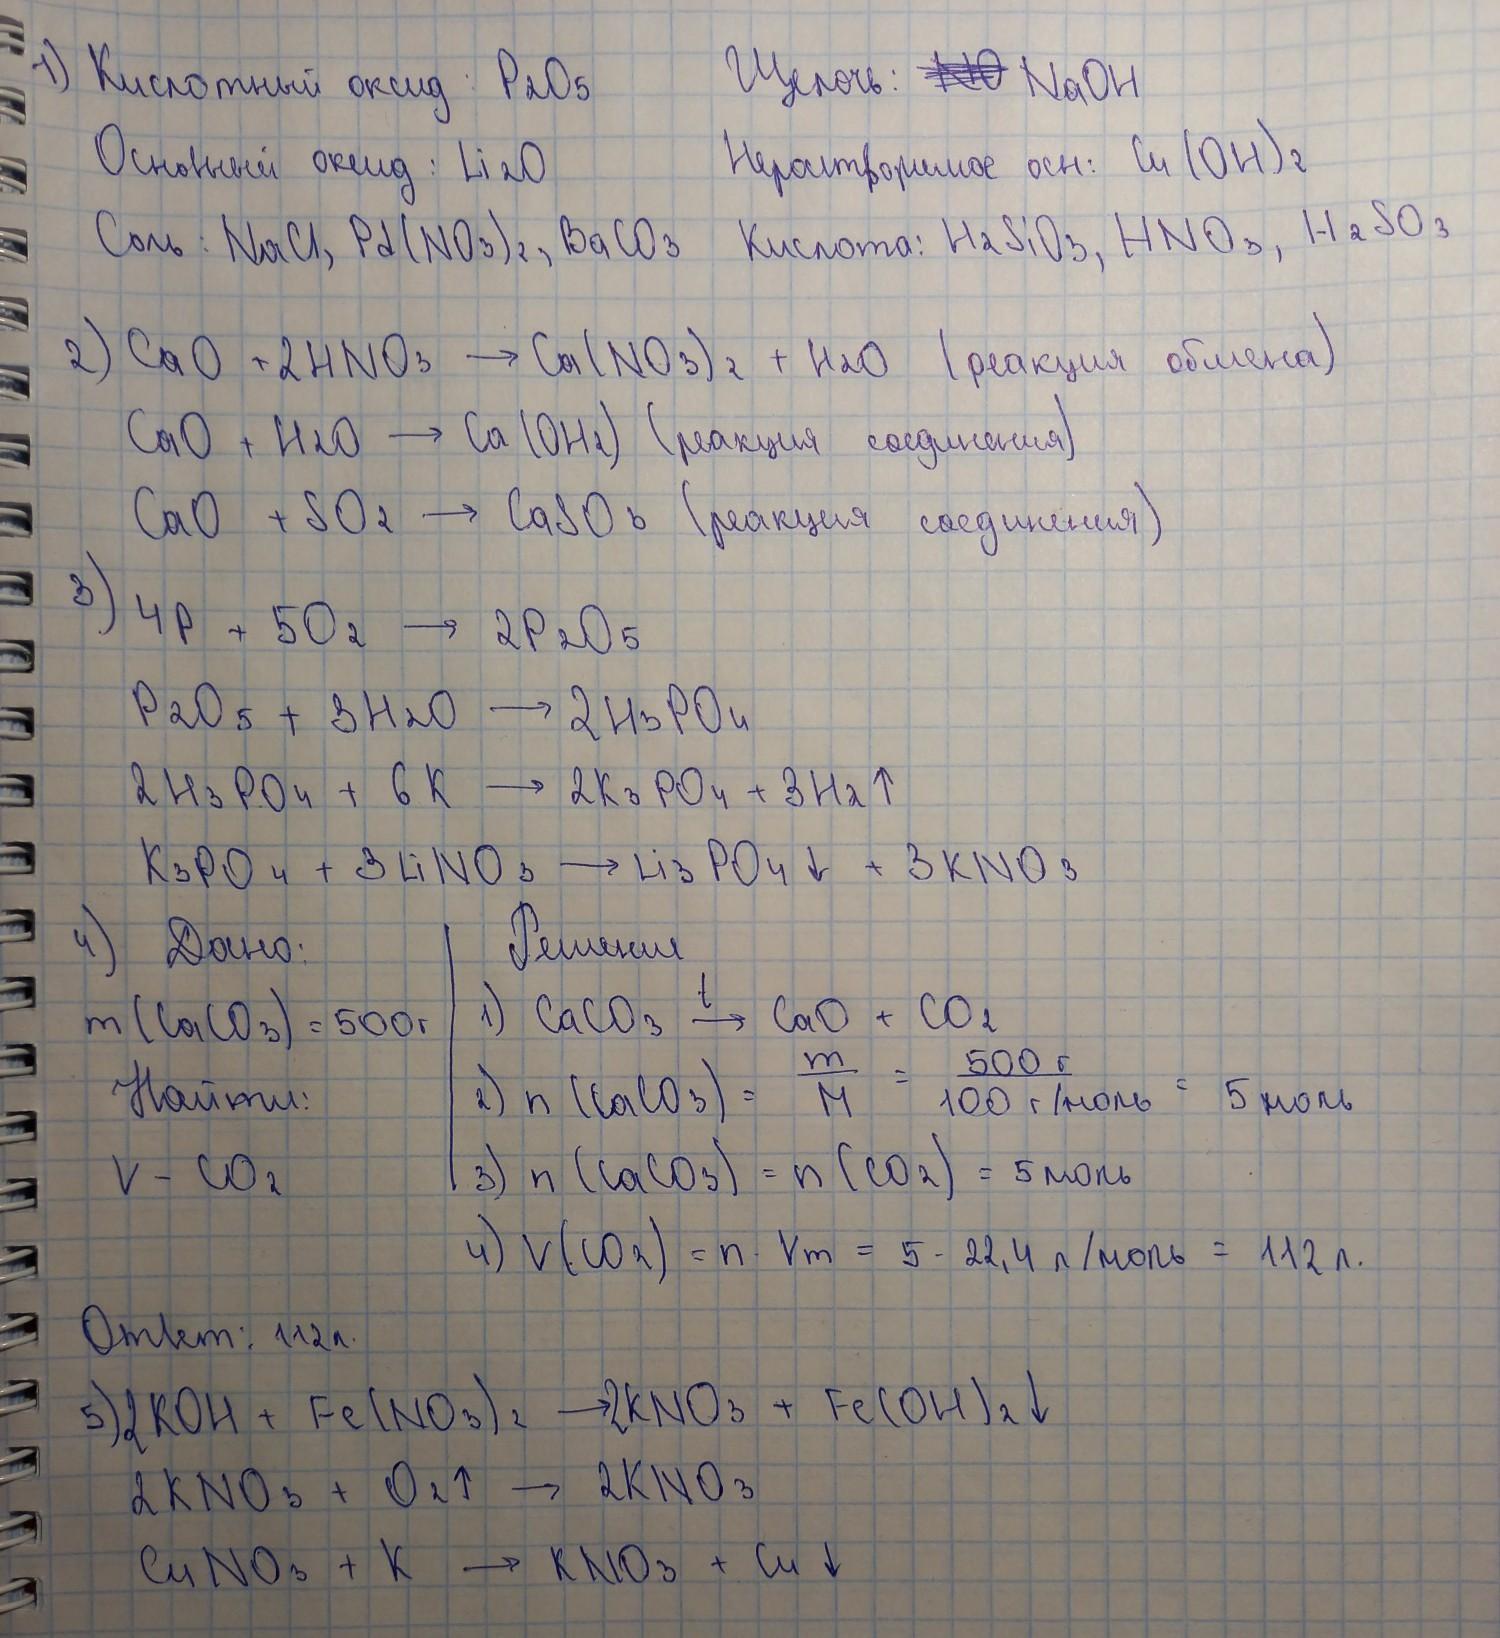 1) Кислотный оксид: P2O5 Щелочь: NaOH
Основный оксид: Li2O Нерастворимое осн: Cu(OH)2
Соль: NaCl, Pd(NO3)2, BaCO3 Кислота: H2SiO3, HNO3, H2SO3
2) CaO + 2HNO3 → Ca(NO3)2 + H2O (реакция обмена)
CaO + H2O → Ca(OH2) (реакция соединения)
CaO + SO2 → CaSO3 (реакция соединения)
3) 4P + 5O2 → 2P2O5
P2O5 + 3H2O → 2H3PO4
2H3PO4 + 6K → 2K3PO4 + 3H2↑
K3PO4 + 3LiNO3 → Li3PO4↓ + 3KNO3
4) Дано: Решение
m(CaCO3) = 500г 1) CaCO3 t→ CaO + CO2
Найти: 2) n(CaCO3) = m/M = 500 г/100 г/моль = 5 моль
V - CO2 3) n(CaCO3) = n(CO2) = 5 моль
4) V(CO2) = n · Vm = 5 · 22,4 л/моль = 112 л.
Ответ: 112л.
5) 2KOH + Fe(NO3)2 → 2KNO3 + Fe(OH)2↓
2KNO3 + O2↑ → 2KNO3
CuNO3 + K → KNO3 + Cu↓